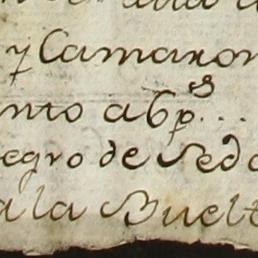 y Camaron
nto a 6 p.s...
egro de Seda
a la Buelt